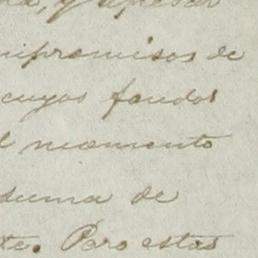 y apesar
mpromisos de
cuyos fondos
l momento
suma de
te. Pero estas